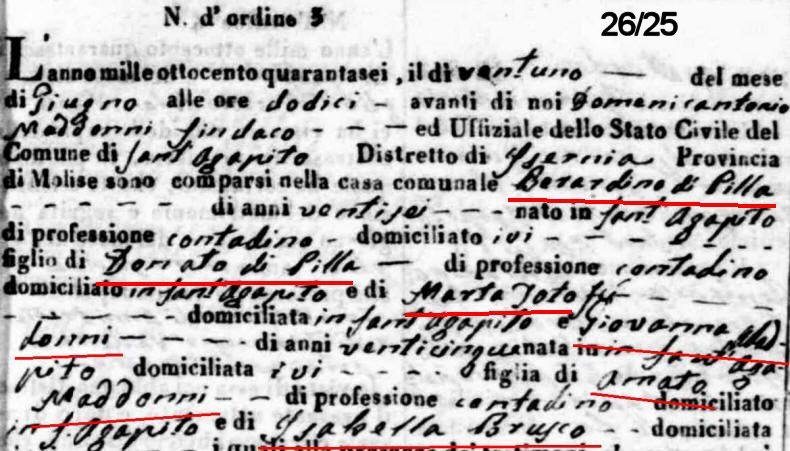 N. d'ordine 3
26/25
L'anno mille ottocento quarantasei, il di ventuno — del mese
di Giugno alle ore dodici - avanti di noi Domenicantonio
Maddonni Sindaco - - ed Uffiziale dello Stato Civile del
Comune di Sant'Agapito Distretto di Isernia Provincia
di Molise sono comparsi nella casa comunale Berardino di Pilla
- - - - - di anni ventisei - - - nato in Sant'Agapito
di professione contadino - domiciliato ivi - - - - -
figlio di Donato di Pilla — di professione contadino
domiciliato in Sant'Agapito e di Marta Toto fu - - -
- - - - - domiciliata in Sant'Agapito e Giovanna Mad-
donni - - - - di anni venticinque nata in Sant'Aga-
pito domiciliata ivi - - - - figlia di Amato
Maddonni - - di professione contadino domiciliato
in S. Agapito e di Isabella Brusco - - domiciliata